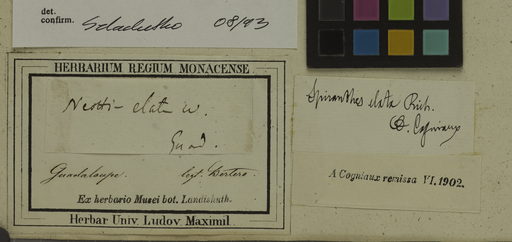 det.
confirm. 08/93
HERBARIUM REGIUM MONACENSE.
Neotti- elata w.
Guad.
Guadaloupe. leg. Bertero.
Ex herbario Musei bot. Landishuth.
Herbar Univ. Ludov Maximil.
Spiranthes elata Rich.
Cogniaux
A Cogniaux remissa VI. 1902.